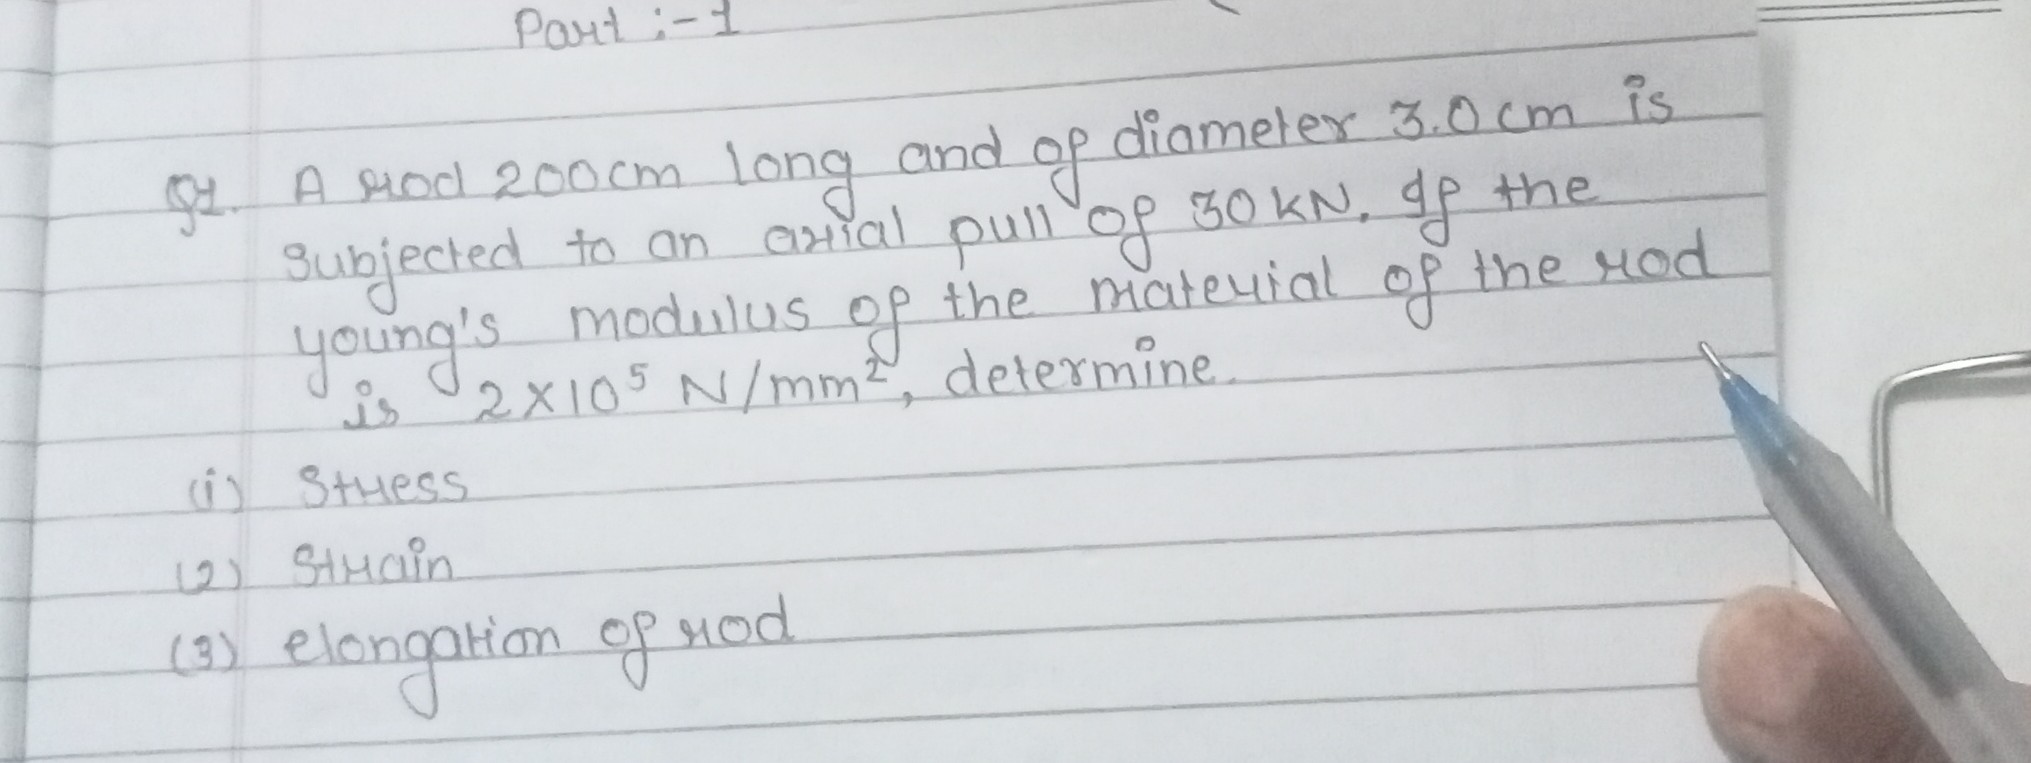 Part :- 1
Q1. A rod 200cm long and of diameter 3.0 cm is
subjected to an axial pull of 30 KN. If the
young's modulus of the material of the rod
is 2×10⁵ N/mm², determine.
(i) Stress
(2) Strain
(3) elongation of rod